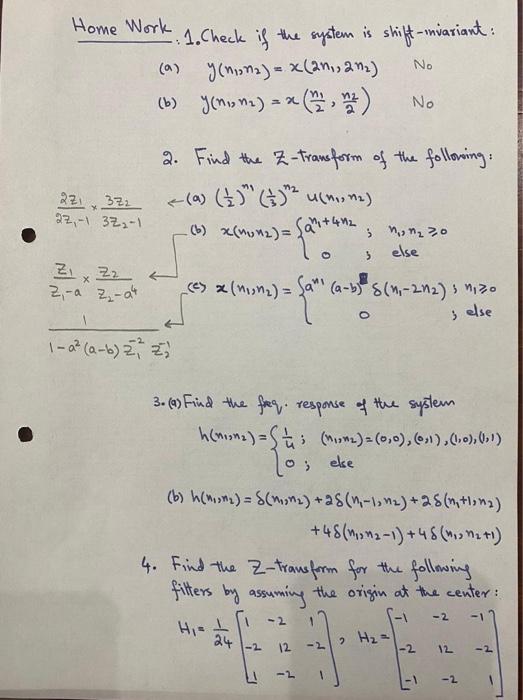 Home Work : 1. Check if the system is shift-invariant :
(a) y(n₁,n₂) = x(2n₁,2n₂) No
(b) y(n₁,n₂) = x(n₁/2, n₂/2) No
2. Find the Z-transform of the following:
2z₁/(2z₁-1) × 3z₂/(3z₂-1) ← (a) (1/2)^n₁ (1/3)^n₂ u(n₁,n₂)
(b) x(n₁,n₂) = { a^(n₁+4n₂) ; n₁,n₂ ≥ 0
0 ; else
z₁/(z₁-a) × z₂/(z₂-a⁴)
(c) x(n₁,n₂) = { a^n₁ (a-b) δ(n₁-2n₂) ; n₁ ≥ 0
0 ; else
1/(1-a²(a-b) z₁⁻² z₂⁻¹)
3. (a) Find the freq. response of the system
h(n₁,n₂) = { 1/4 ; (n₁,n₂) = (0,0), (0,1), (1,0), (1,1)
0 ; else
(b) h(n₁,n₂) = δ(n₁,n₂) + 2δ(n₁-1,n₂) + 2δ(n₁+1,n₂)
+ 4δ(n₁,n₂-1) + 4δ(n₁,n₂+1)
4. Find the Z-transform for the following
filters by assuming the origin at the center :
H₁ = 1/24 [1 -2 1 , H₂ = [-1 -2 -1
-2 12 -2 -2 12 -2
1 -2 1] -1 -2 1]